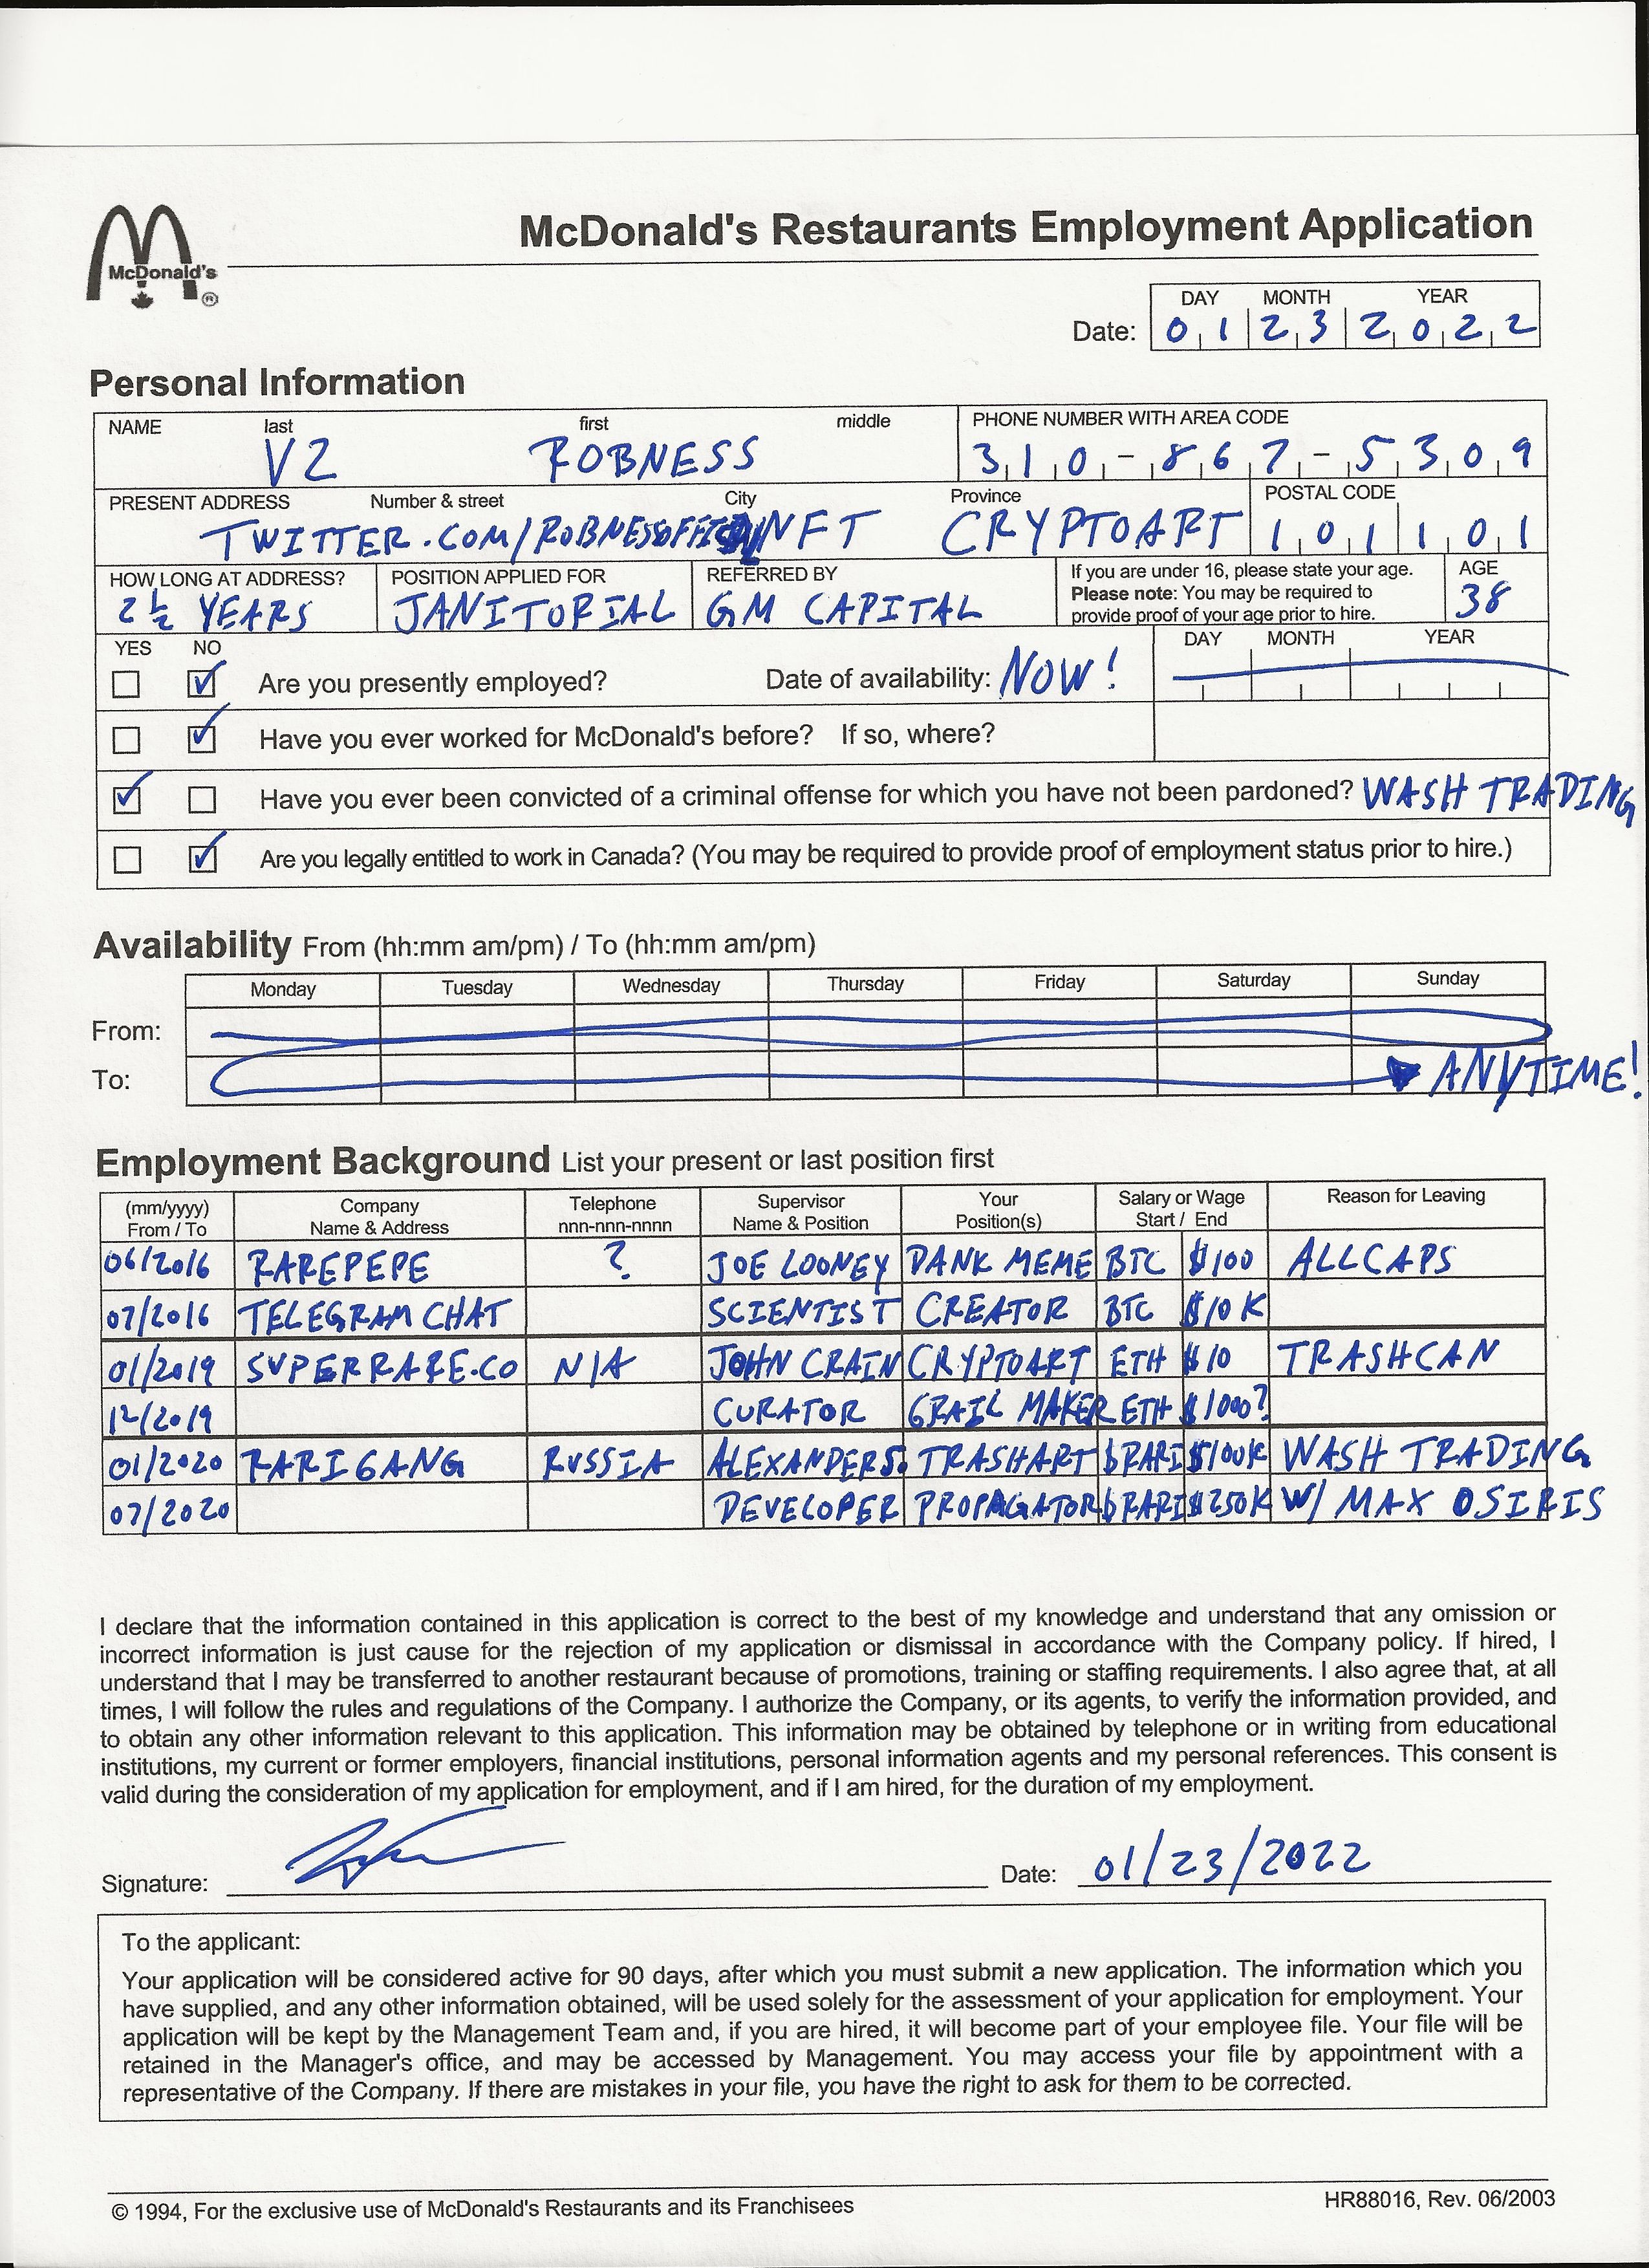 McDonald's Restaurants Employment Application
McDonald's ®
DAY MONTH YEAR
Date: 01 23 2022
Personal Information
NAME last first middle PHONE NUMBER WITH AREA CODE
V2 ROBNESS 310-867-5309
PRESENT ADDRESS Number & street City Province POSTAL CODE
TWITTER.COM/ROBNESSOFFICI NFT CRYPTOART 101101
HOW LONG AT ADDRESS? POSITION APPLIED FOR REFERRED BY If you are under 16, please state your age. AGE
2 ½ YEARS JANITORIAL GM CAPITAL Please note: You may be required to 38
provide proof of your age prior to hire.
YES NO DAY MONTH YEAR
Are you presently employed? Date of availability: NOW!
Have you ever worked for McDonald's before? If so, where?
Have you ever been convicted of a criminal offense for which you have not been pardoned? WASH TRADING
Are you legally entitled to work in Canada? (You may be required to provide proof of employment status prior to hire.)
Availability From (hh:mm am/pm) / To (hh:mm am/pm)
Monday Tuesday Wednesday Thursday Friday Saturday Sunday
From:
To: ANYTIME!
Employment Background List your present or last position first
(mm/yyyy) Company Telephone Supervisor Your Salary or Wage Reason for Leaving
From / To Name & Address nnn-nnn-nnnn Name & Position Position(s) Start / End
06/2016 RAREPEPE ? JOE LOONEY DANK MEME BTC $100 ALLCAPS
07/2016 TELEGRAM CHAT SCIENTIST CREATOR BTC $10K
01/2019 SUPERRARE.CO N/A JOHN CRAIN CRYPTOART ETH $10 TRASHCAN
12/2019 CURATOR GRAIL MAKER ETH $1000?
01/2020 RARIGANG RUSSIA ALEXANDER S. TRASHART $RARI $100K WASH TRADING
07/2020 DEVELOPER PROPAGATOR $RARI $250K W/ MAX OSIRIS
I declare that the information contained in this application is correct to the best of my knowledge and understand that any omission or
incorrect information is just cause for the rejection of my application or dismissal in accordance with the Company policy. If hired, I
understand that I may be transferred to another restaurant because of promotions, training or staffing requirements. I also agree that, at all
times, I will follow the rules and regulations of the Company. I authorize the Company, or its agents, to verify the information provided, and
to obtain any other information relevant to this application. This information may be obtained by telephone or in writing from educational
institutions, my current or former employers, financial institutions, personal information agents and my personal references. This consent is
valid during the consideration of my application for employment, and if I am hired, for the duration of my employment.
Signature: Date: 01/23/2022
To the applicant:
Your application will be considered active for 90 days, after which you must submit a new application. The information which you
have supplied, and any other information obtained, will be used solely for the assessment of your application for employment. Your
application will be kept by the Management Team and, if you are hired, it will become part of your employee file. Your file will be
retained in the Manager's office, and may be accessed by Management. You may access your file by appointment with a
representative of the Company. If there are mistakes in your file, you have the right to ask for them to be corrected.
© 1994, For the exclusive use of McDonald's Restaurants and its Franchisees HR88016, Rev. 06/2003